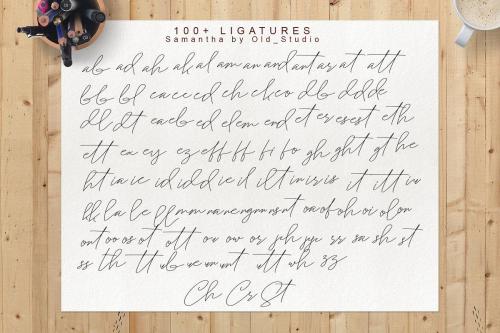 100+ LIGATURES
Samantha by Old_Studio
ab ad ah ak al am an and ant ar at att
bb bl ea ee ed eh ck co db dd de
dl dt ea eb ed el em end et er es est eth
ett ea ey ez eff ff fi fo gh ght gt the
ht ia ie id idd ie il ilt in ir is it itt iv
kk la le ll mm na ne ng nn ns nt oa of oh oi ol on
ont oo os ot ott ou ow or ph pp rr sa sh st
ss th tt ub ue un unt utt wh zz
Ch Cr St